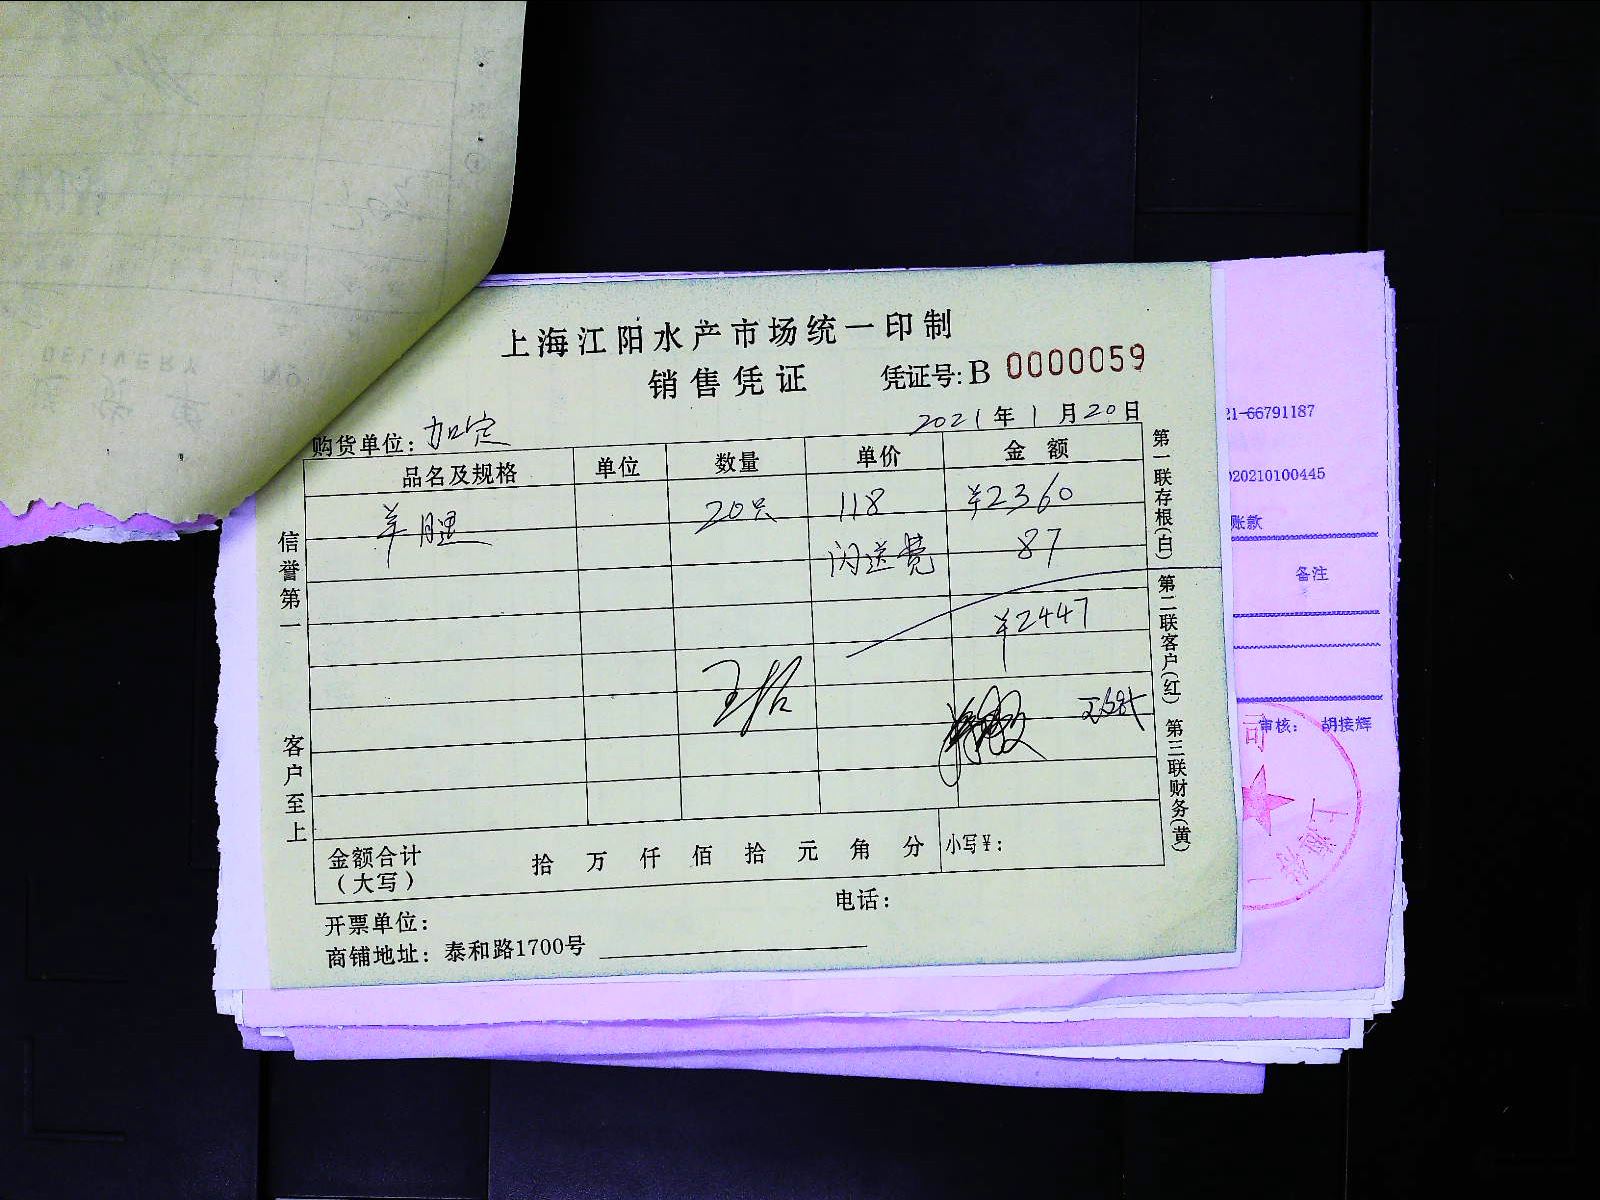 上海江阳水产市场统一印制
销售凭证
凭证号:B 0000059
购货单位:加定
2021年1月20日
品名及规格 单位 数量 单价 金额
羊腿 20只 118 ¥2360
闪送费 87
¥2447
金额合计（大写） 拾 万 仟 佰 拾 元 角 分 小写¥:
开票单位:
电话:
商铺地址: 泰和路1700号
信誉第一
客户至上
第一联存根(白)
第二联客户(红)
第三联财务(黄)
21-66791187
020210100445
账款
备注
审核: 胡接辉
司
上海
DELIVERY
NO.